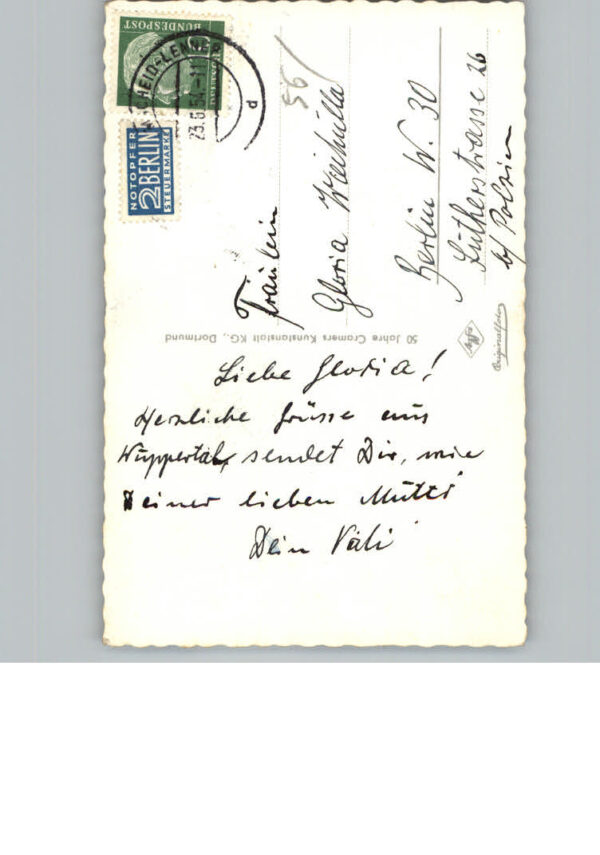 DEUTSCHE
BUNDESPOST
SCHEID-LENNEP
23.6.54-11
d
NOTOPFER
2 BERLIN
STEUERMARKE
56/
Fräulein
Gloria
Berlin W. 30
Lutherstrasse 26
b/
50 Jahre Cramers Kunstanstalt KG., Dortmund
Agfa
Originalfoto
Liebe Gloria!
Herzliche Grüsse aus
Wuppertal, sendet Dir, wie
Deiner lieben Mutti
Dein Vati